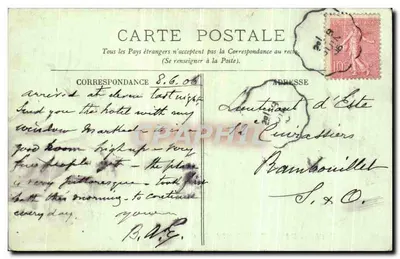 CARTE POSTALE
Tous les Pays étrangers n'acceptent pas la Correspondance au recto
(Se renseigner à la Poste).
CORRESPONDANCE
ADRESSE
8.6.06
arrived at above last night
Send you the hotel with my
window marked
good room high up very
few people yet - the place
is very picturesque - took first
bath this morning - to continue
every day.
yours
B.
Lieutenant d'Este
Cuirassiers
Rambouillet
S. & O.
10
PAPHIL